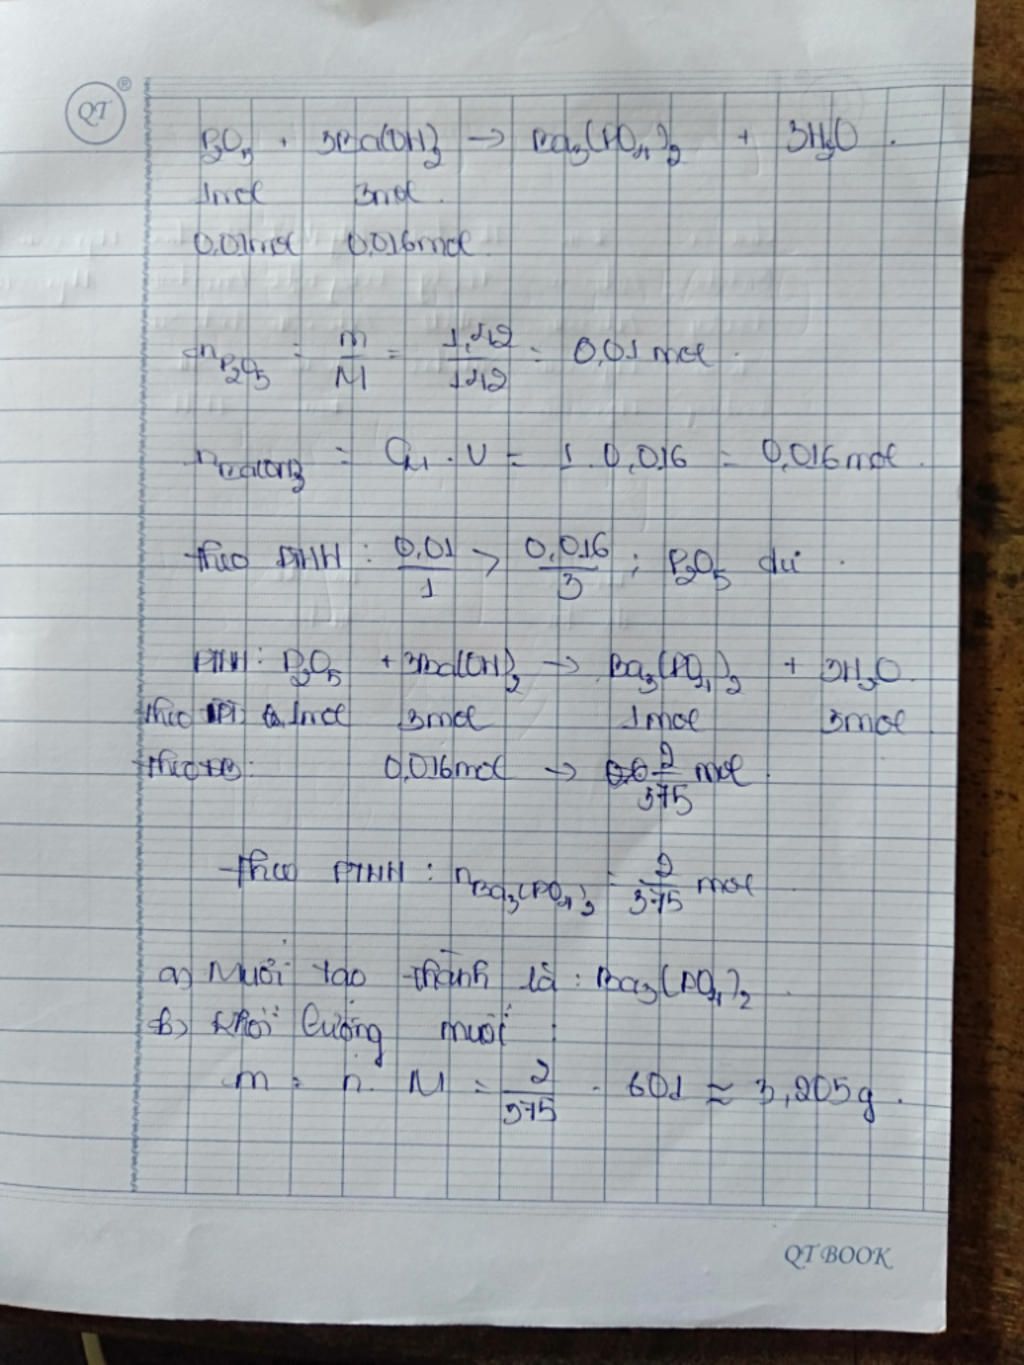 QT ®
P2O5 + 3Ba(OH)2 → Ba3(PO4)2 + 3H2O.
1mol 3mol.
0,01mol 0,016mol.
nP2O5 = m/M = 1,42/142 = 0,01 mol.
nBa(OH)2 = CM . V = 1.0,016 = 0,016 mol.
Theo PTHH: 0,01/1 > 0,016/3; P2O5 dư.
PTHH: P2O5 + 3Ba(OH)2 → Ba3(PO4)2 + 3H2O.
Theo PT: 1mol 3mol 1mol 3mol
Theo ĐB: 0,016mol → 2/375 mol.
Theo PTHH: nBa3(PO4)2 = 2/375 mol
a) Muối tạo thành là: Ba3(PO4)2.
b) Khối lượng muối:
m = n. M = 2/375 . 601 ≈ 3,205g.
QT BOOK